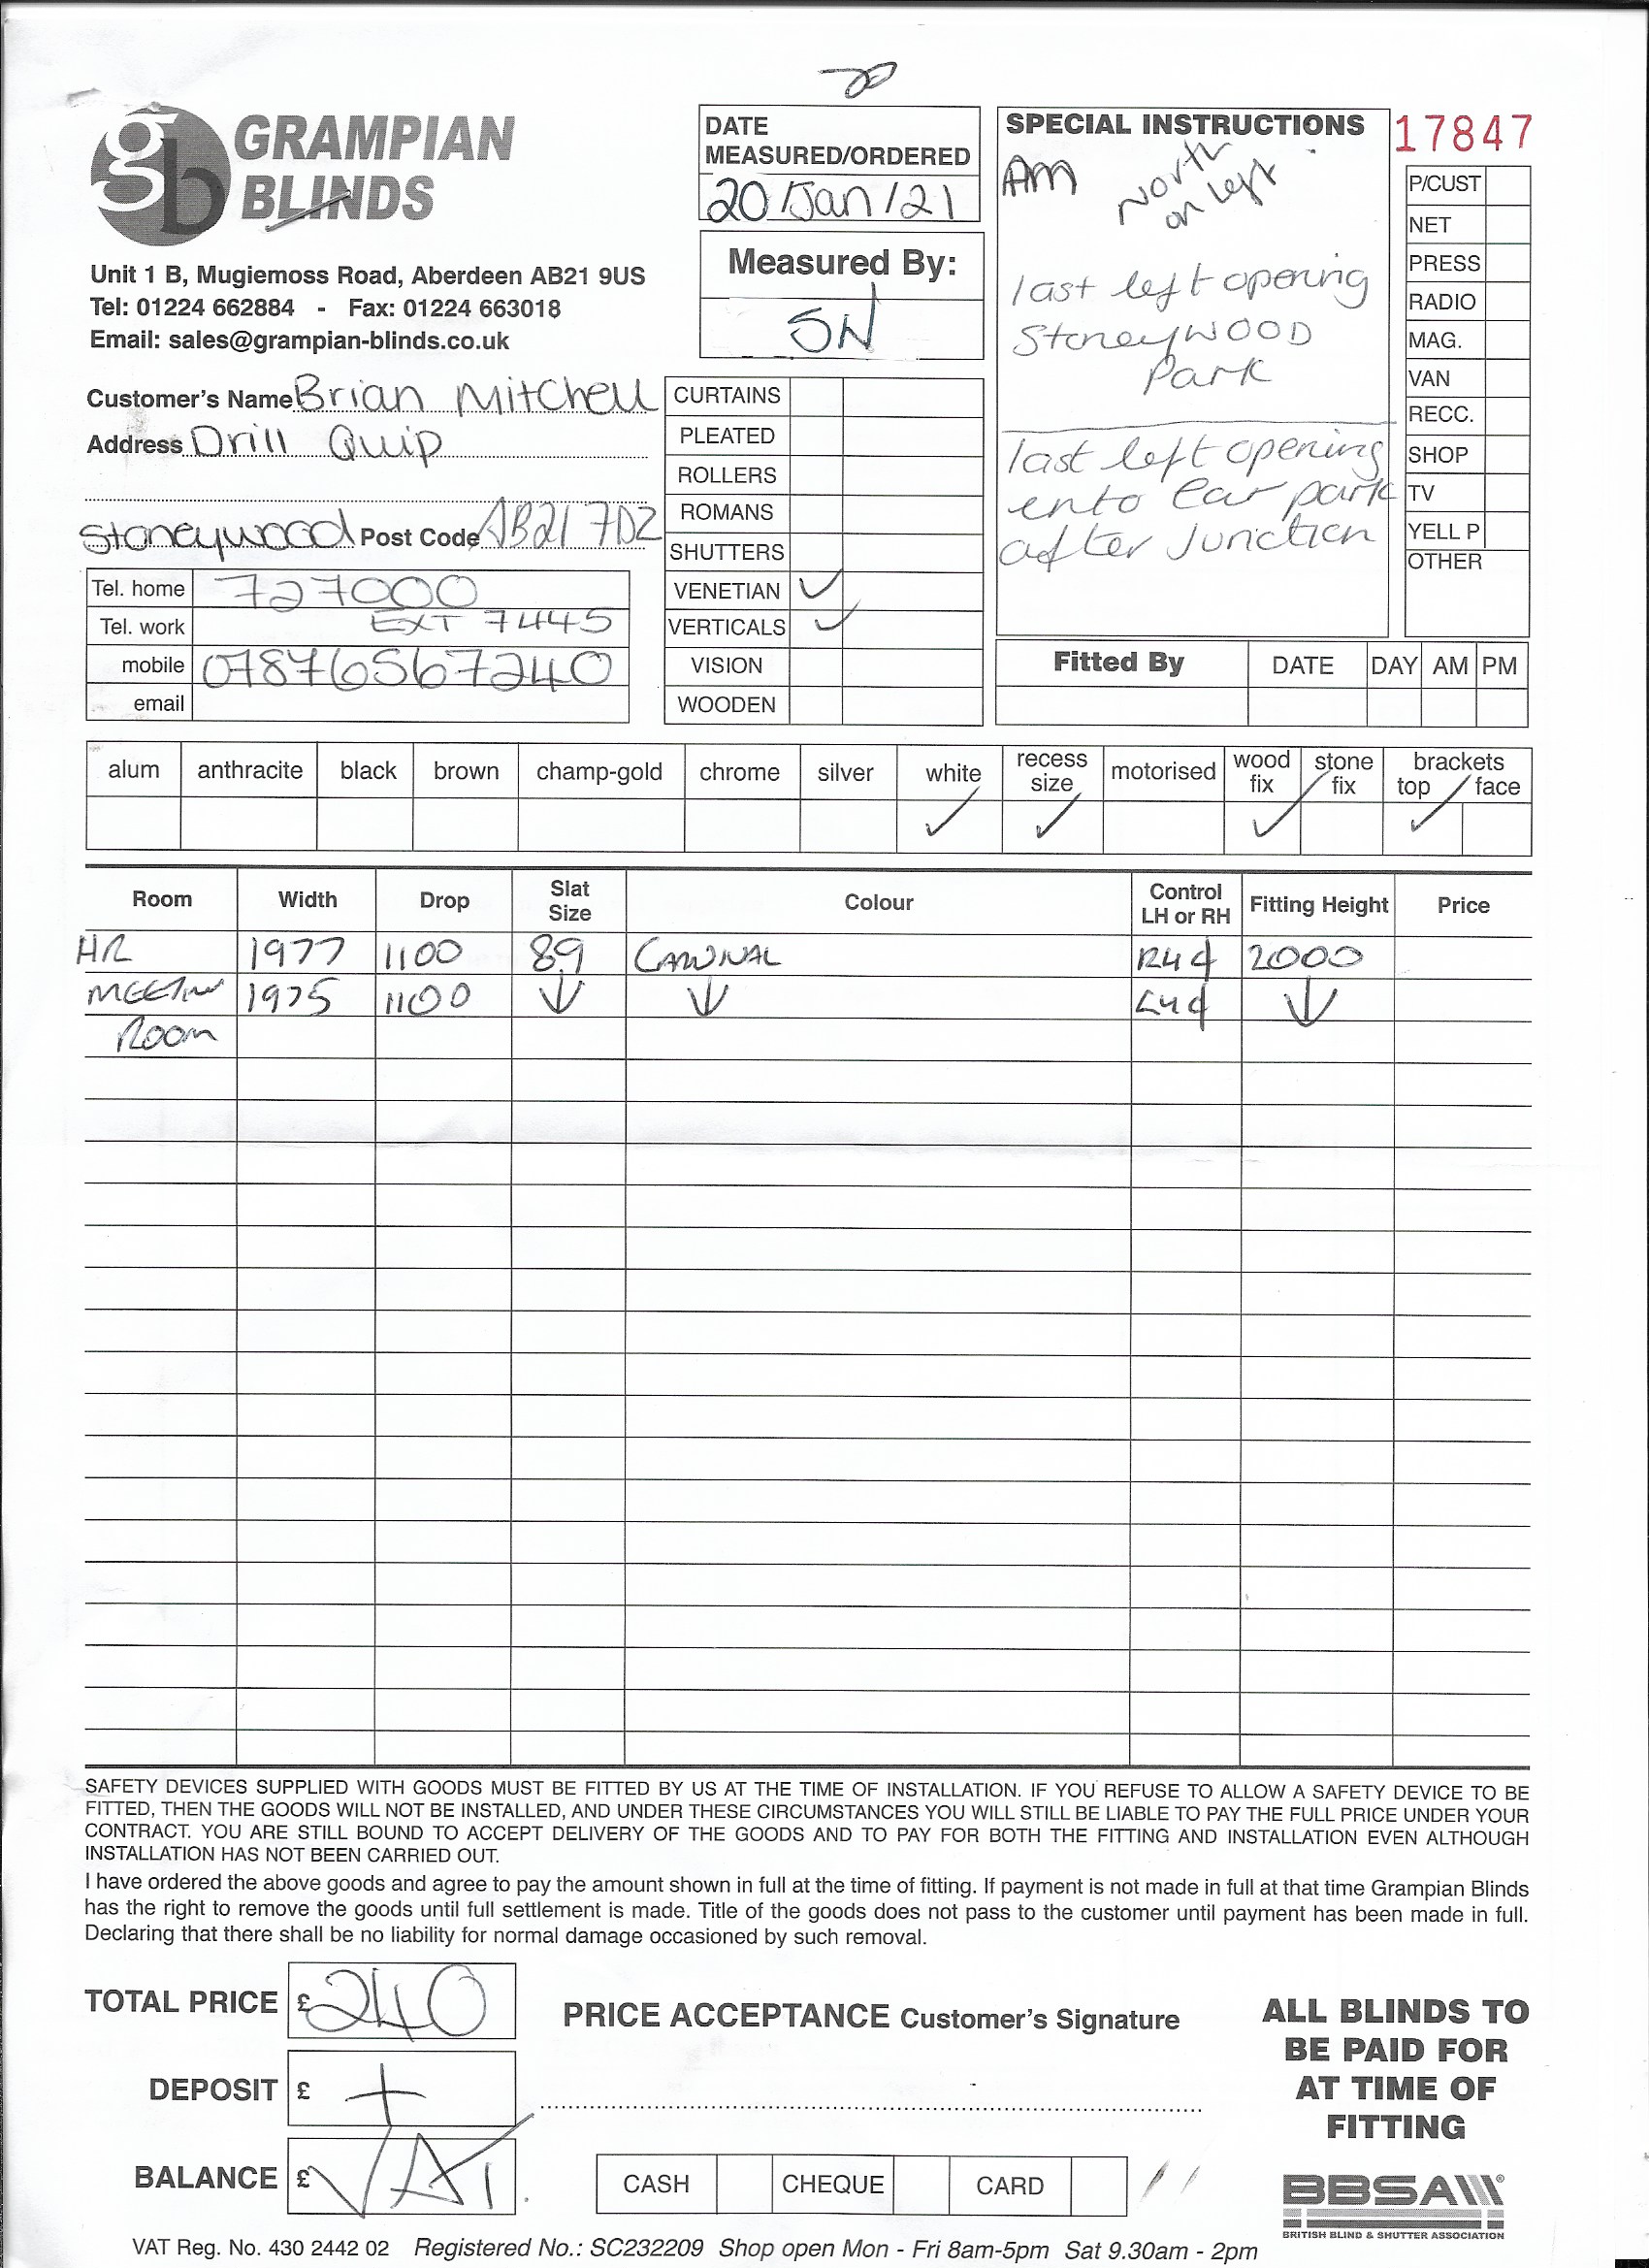 20
gb GRAMPIAN
BLINDS
Unit 1 B, Mugiemoss Road, Aberdeen AB21 9US
Tel: 01224 662884 - Fax: 01224 663018
Email: sales@grampian-blinds.co.uk
DATE
MEASURED/ORDERED
20/Jan/21
Measured By:
SN
SPECIAL INSTRUCTIONS
AM
North
on left
last left opening
StoneyWOOD
Park
last left opening
ento car park
after Junction
17847
P/CUST
NET
PRESS
RADIO
MAG.
VAN
RECC.
SHOP
TV
YELL P
OTHER
Customer's Name Brian Mitchell
Address Drill Quip
Stoneywood Post Code AB21 7DZ
Tel. home 727000
Tel. work EXT 7445
mobile 07876567240
email
CURTAINS
PLEATED
ROLLERS
ROMANS
SHUTTERS
VENETIAN ✓
VERTICALS ✓
VISION
WOODEN
Fitted By DATE DAY AM PM
alum anthracite black brown champ-gold chrome silver white recess size motorised wood fix stone fix brackets top face
✓ ✓ ✓ ✓
Room Width Drop Slat Size Colour Control LH or RH Fitting Height Price
HR 1977 1100 89 CARNIVAL 2000
MEETING 1975 1100 ↓ ↓ ↓
ROOM
SAFETY DEVICES SUPPLIED WITH GOODS MUST BE FITTED BY US AT THE TIME OF INSTALLATION. IF YOU REFUSE TO ALLOW A SAFETY DEVICE TO BE
FITTED, THEN THE GOODS WILL NOT BE INSTALLED, AND UNDER THESE CIRCUMSTANCES YOU WILL STILL BE LIABLE TO PAY THE FULL PRICE UNDER YOUR
CONTRACT. YOU ARE STILL BOUND TO ACCEPT DELIVERY OF THE GOODS AND TO PAY FOR BOTH THE FITTING AND INSTALLATION EVEN ALTHOUGH
INSTALLATION HAS NOT BEEN CARRIED OUT.
I have ordered the above goods and agree to pay the amount shown in full at the time of fitting. If payment is not made in full at that time Grampian Blinds
has the right to remove the goods until full settlement is made. Title of the goods does not pass to the customer until payment has been made in full.
Declaring that there shall be no liability for normal damage occasioned by such removal.
TOTAL PRICE £240
DEPOSIT £ +
BALANCE £ VAT.
PRICE ACCEPTANCE Customer's Signature
CASH CHEQUE CARD
ALL BLINDS TO
BE PAID FOR
AT TIME OF
FITTING
BBSA
BRITISH BLIND & SHUTTER ASSOCIATION
VAT Reg. No. 430 2442 02 Registered No.: SC232209 Shop open Mon - Fri 8am-5pm Sat 9.30am - 2pm